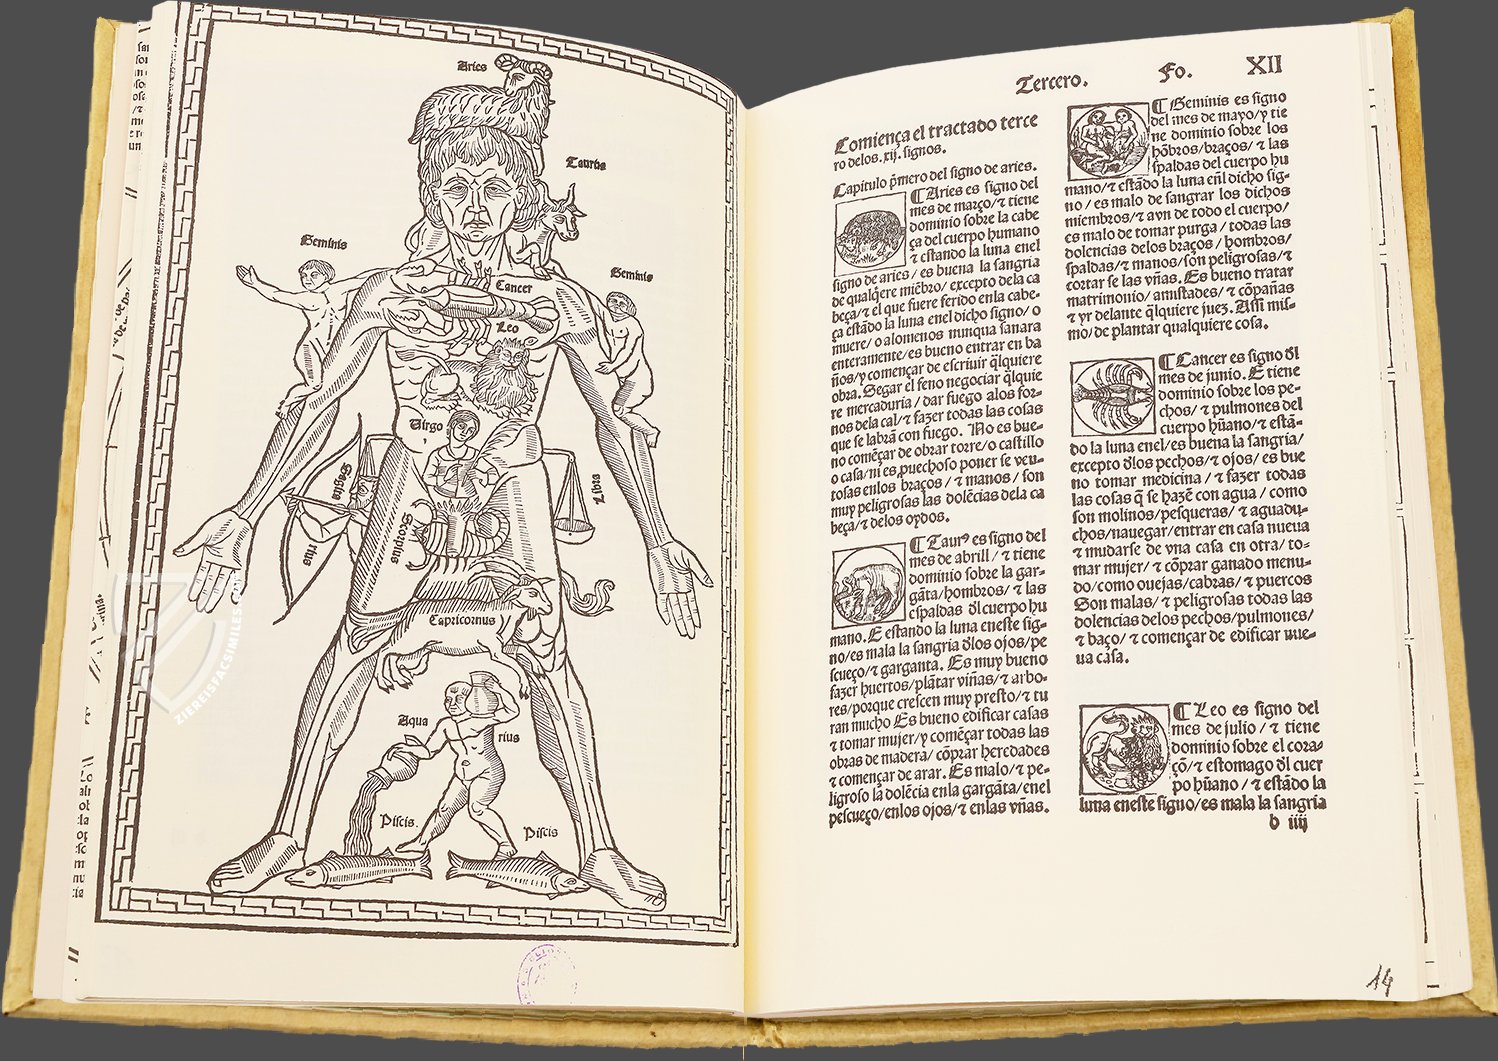 Aries
Taurus
Geminis
Geminis
Cancer
Leo
Virgo
Sagita
rius
Libra
Scorpius
Capricornus
Aqua
rius
Piscis.
Piscis
ZIEREISFACSIMILES.COM
Tercero. Fo. XII
Comiença el tractado terce
ro delos .xij. signos.
Capitulo p̃mero del signo de aries.
¶ Aries es signo del
mes de março/ ⁊ tiene
dominio sobre la cabe
ça del cuerpo humano
⁊ estando la luna enel
signo de aries/ es buena la sangria
de qualq̃ere miẽbro/ excepto dela ca
beça/ ⁊ el que fuere ferido enla cabe-
ça estãdo la luna enel dicho signo/ o
muere/ o alomenos nunqua sanara
enteramente/ es bueno entrar en ba
ños/ y començar de escriuir q̃lquiere
obra. Segar el feno negociar q̃lquie
re mercaduria/ dar fuego alos for-
nos dela cal/ ⁊ fazer todas las cosas
que se labrã con fuego. No es bue-
no comẽçar de obrar torre/ o castillo
o casa/ ni es prouechoso poner se veu-
tosas enlos braços/ ⁊ manos/ son
muy peligrosas las dolẽcias dela ca
beça/ ⁊ delos oydos.
¶ Taurꝰ es signo del
mes de abrill/ ⁊ tiene
dominio sobre la gar-
gãta/ hombros/ ⁊ las
espaldas d̃l cuerpo hu
mano. E estando la luna eneste sig-
no/ es mala la sangria d̃los ojos/ pe
scueço/ ⁊ garganta. Es muy bueno
fazer huertos/ plãtar viñas/ ⁊ arbo-
res/ porque crescen muy presto/ ⁊ tu
ran mucho Es bueno edificar casas
⁊ tomar mujer/ y comẽçar todas las
obras de madera/ cõprar heredades
⁊ començar de arar. Es malo/ ⁊ pe-
ligroso la dolẽcia enla gargãta/ enel
pescueço/ enlos ojos/ ⁊ enlas vñas.
¶ Geminis es signo
del mes de mayo/ y tie
ne dominio sobre los
hõbros/ braços/ ⁊ las
spaldas del cuerpo hu
mano/ ⁊ estãdo la luna eñl dicho sig-
no/ es malo de sangrar los dichos
miembros/ ⁊ avn de todo el cuerpo/
es malo de tomar purga/ todas las
dolencias delos braços/ hombros/
spaldas/ ⁊ manos/ son peligrosas/ ⁊
cortar se las vñas. Es bueno tratar
matrimonio/ amistades/ ⁊ cõpañas
⁊ yr delante q̃lquiere juez. Assi mis-
mo/ de plantar qualquiere cosa.
¶ Cancer es signo d̃l
mes de junio. E tiene
dominio sobre los pe-
chos/ ⁊ pulmones del
cuerpo hũano/ ⁊ estã-
do la luna enel/ es buena la sangria/
excepto d̃los pechos/ ⁊ ojos/ es bue
no tomar medicina/ ⁊ fazer todas
las cosas q̃ se hazẽ con agua/ como
son molinos/ pesqueras/ ⁊ aguadu-
chos/ nauegar/ entrar en casa nueua
⁊ mudarse de vna casa en otra/ to-
mar mujer/ ⁊ cõprar ganado menu-
do/ como ouejas/ cabras/ ⁊ puercos
Son malas/ ⁊ peligrosas todas las
dolencias delos pechos/ pulmones/
⁊ baço/ ⁊ començar de edificar nue-
ua casa.
¶ Leo es signo del
mes de julio/ ⁊ tiene
dominio sobre el cora-
çõ/ ⁊ estomago d̃l cuer
po hũano/ ⁊ estãdo la
luna eneste signo/ es mala la sangria
b iiij
14